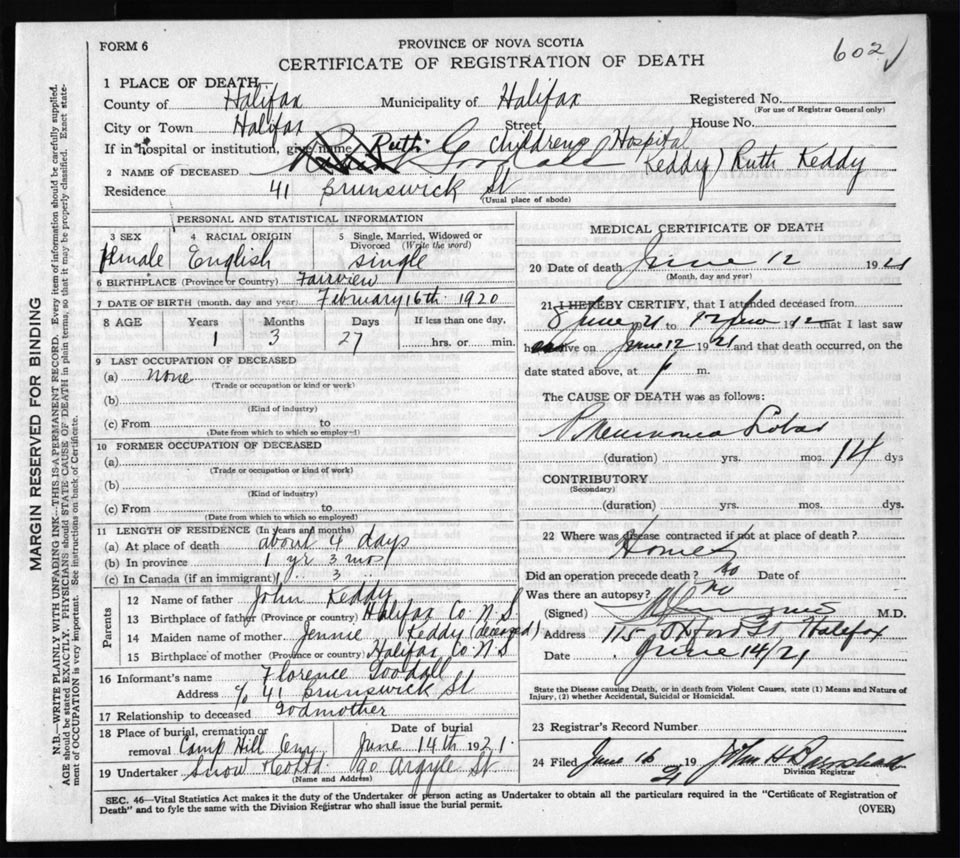 FORM 6
PROVINCE OF NOVA SCOTIA
602
CERTIFICATE OF REGISTRATION OF DEATH
1 PLACE OF DEATH
County of Halifax Municipality of Halifax Registered No.
(For use of Registrar General only)
City or Town Halifax Street House No.
If in hospital or institution, give name Childrens Hospital
2 NAME OF DECEASED Ruth Goodall Keddy) Ruth Keddy
Residence 41 Brunswick St
(Usual place of abode)
PERSONAL AND STATISTICAL INFORMATION
3 SEX 4 RACIAL ORIGIN 5 Single, Married, Widowed or Divorced (Write the word)
Female English single
6 BIRTHPLACE (Province or Country) Fairview
7 DATE OF BIRTH (month, day and year) February 16th 1920
8 AGE Years Months Days If less than one day,
1 3 27 hrs. or min.
9 LAST OCCUPATION OF DECEASED
(a) none
(Trade or occupation or kind or work)
(b)
(Kind of industry)
(c) From to
(Date from which to which so employed)
10 FORMER OCCUPATION OF DECEASED
(a)
(Trade or occupation or kind of work)
(b)
(Kind of industry)
(c) From to
(Date from which to which so employed)
11 LENGTH OF RESIDENCE (In years and months)
(a) At place of death about 4 days
(b) In province 1 yr 3 mos
(c) In Canada (if an immigrant) 1 3
Parents
12 Name of father John Keddy
13 Birthplace of father (Province or country) Halifax Co N.S.
14 Maiden name of mother Jennie Keddy (deceased)
15 Birthplace of mother (Province or country) Halifax Co N S
16 Informant's name Florence Goodall
Address c/o 41 Brunswick St
17 Relationship to deceased Godmother
18 Place of burial, cremation or removal Camp Hill Cem Date of burial June 14th 1921.
19 Undertaker Snow & Co Ltd 90 Argyle St
(Name and Address)
MEDICAL CERTIFICATE OF DEATH
20 Date of death June 12 1921
(Month, day and year)
21 I HEREBY CERTIFY, that I attended deceased from
8 June 21 to 12 June that I last saw
alive on June 12 1921 and that death occurred, on the
date stated above, at m.
The CAUSE OF DEATH was as follows:
Pneumonia Lobar
(duration) yrs. mos. 14 dys
CONTRIBUTORY
(Secondary)
(duration) yrs. mos. dys.
22 Where was disease contracted if not at place of death?
Home
Did an operation precede death? no Date of
Was there an autopsy? no
(Signed) M.D.
Address 115 Oxford St, Halifax
Date June 14/21
State the Disease causing Death, or in death from Violent Causes, state (1) Means and Nature of
Injury, (2) whether Accidental, Suicidal or Homicidal.
23 Registrar's Record Number
24 Filed June 16 21 19 John H
Division Registrar
SEC. 46—Vital Statistics Act makes it the duty of the Undertaker or person acting as Undertaker to obtain all the particulars required in the "Certificate of Registration of
Death" and to fyle the same with the Division Registrar who shall issue the burial permit.
(OVER)
MARGIN RESERVED FOR BINDING
N.B.—WRITE PLAINLY WITH UNFADING INK—THIS IS A PERMANENT RECORD. Every item of information should be carefully supplied.
AGE should be stated EXACTLY. PHYSICIANS should STATE CAUSE OF DEATH in plain terms, so that it may be properly classified. Exact state-
ment of OCCUPATION is very important. See instructions on back of Certificate.